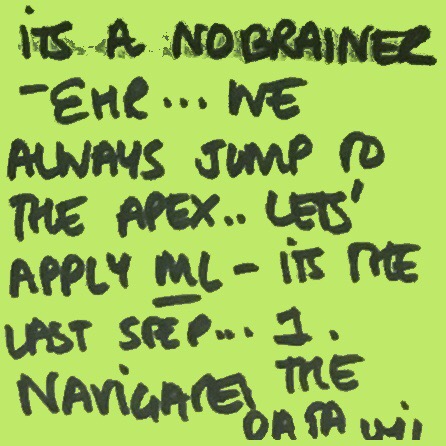 iTS A NOBRAINER
- EHR... WE
ALWAYS JUMP TO
THE APEX.. LETS'
APPLY ML - iTS THE
LAST STEP... 1.
NAViGATE THE
DATA